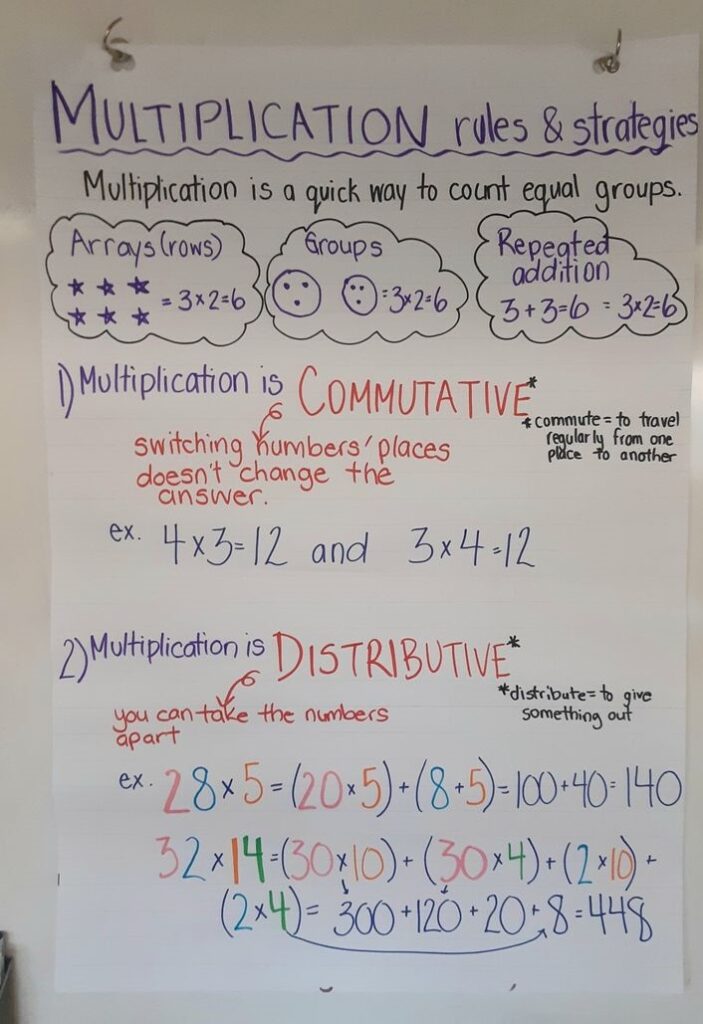 MULTIPLICATION rules & strategies
Multiplication is a quick way to count equal groups.
Arrays (rows)
= 3×2=6
Groups
=3×2=6
Repeated
addition
3+3=6 = 3×2=6
1) Multiplication is COMMUTATIVE*
*commute= to travel
regularly from one
place to another
switching numbers' places
doesn't change the
answer.
ex. 4×3=12 and 3×4=12
2) Multiplication is DISTRIBUTIVE*
*distribute= to give
something out
you can take the numbers
apart
ex. 28×5=(20×5)+(8+5)=100+40=140
32×14=(30×10)+(30×4)+(2×10)+
(2×4)= 300+120+20+8=448